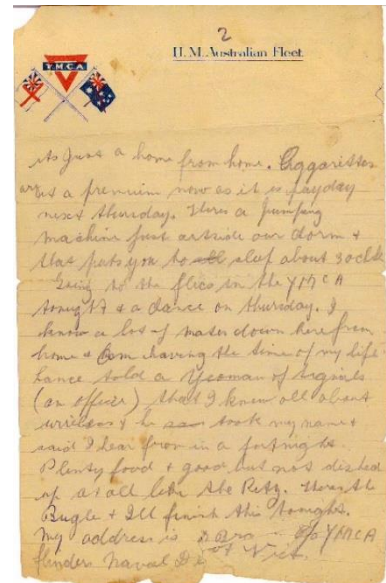 2
H.M. Australian Fleet.
YMCA
its Just a home from home. Ciggarittes
are at a premium now as it is payday
next thursday. Theres a pumping
machine just outside our dorm &
that puts you to sleep about 3 oclk
Going to the flics in the YMCA
tonight & a dance on thursday. I
know a lot of mates down here from
home & am having the time of my life
hance told a Yeoman of signals
(an officer) that I knew all about
wireless & he took my name &
said I hear from in a fortnight.
Plenty food & good but not dished
up at all like the Retty. Theres the
Bugle & Ill finish this tonight.
My address is YMCA
flinders Naval Vict.